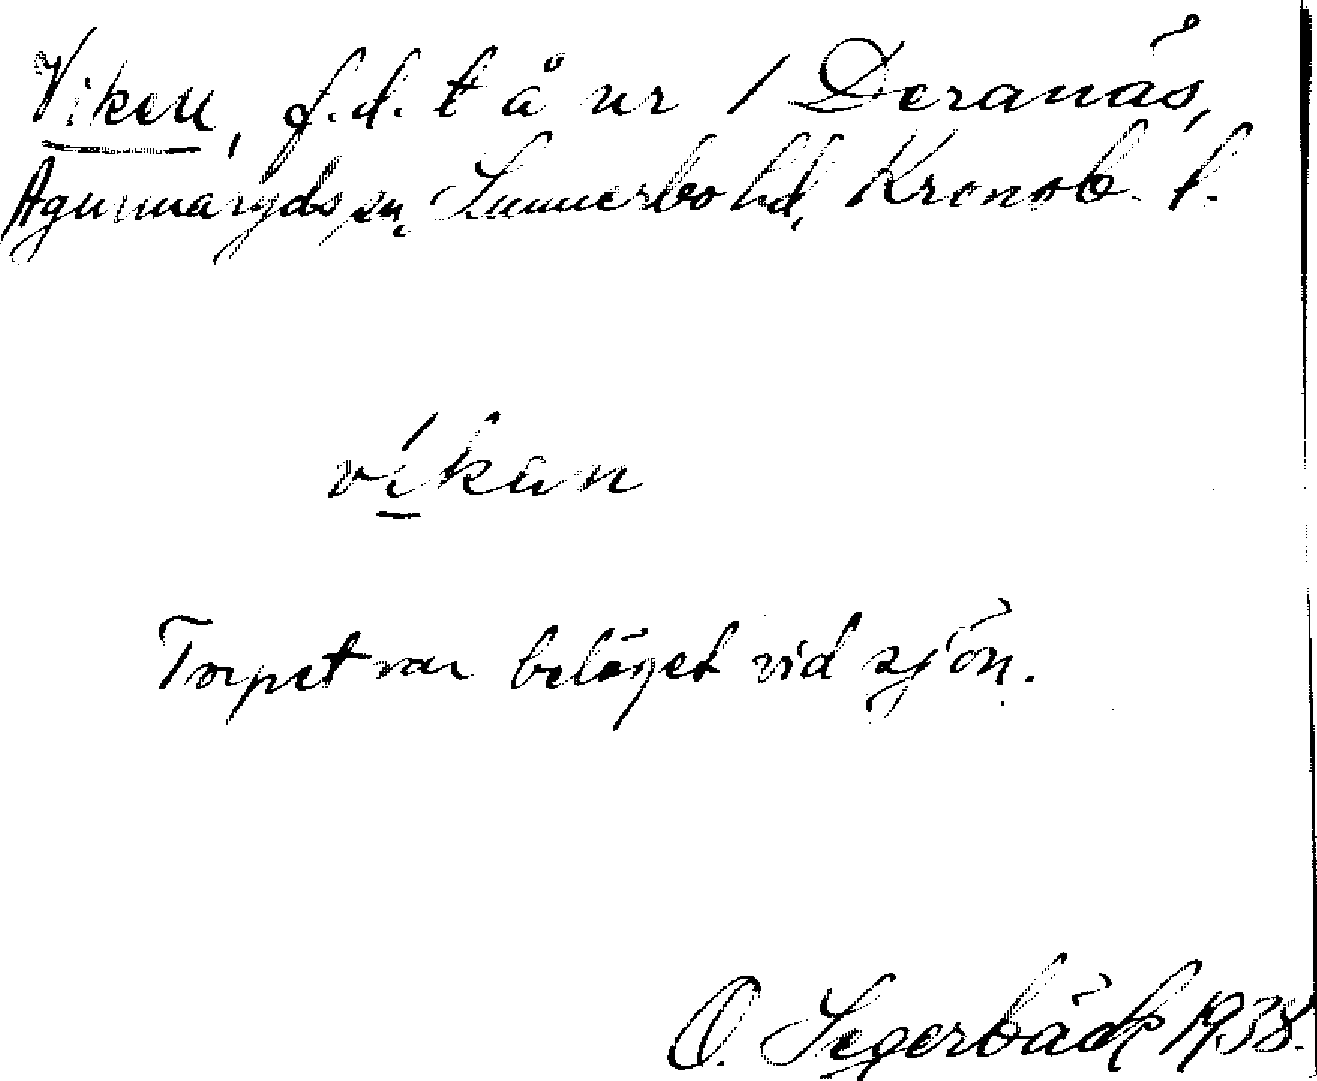 Viken, f.d. t å nr 1 Deranäs,
Agunnaryds sn, Sunnerbo hd, Kronob. l.
víkan
Torpet var beläget vid sjön.
O. Segerbäck 1938.